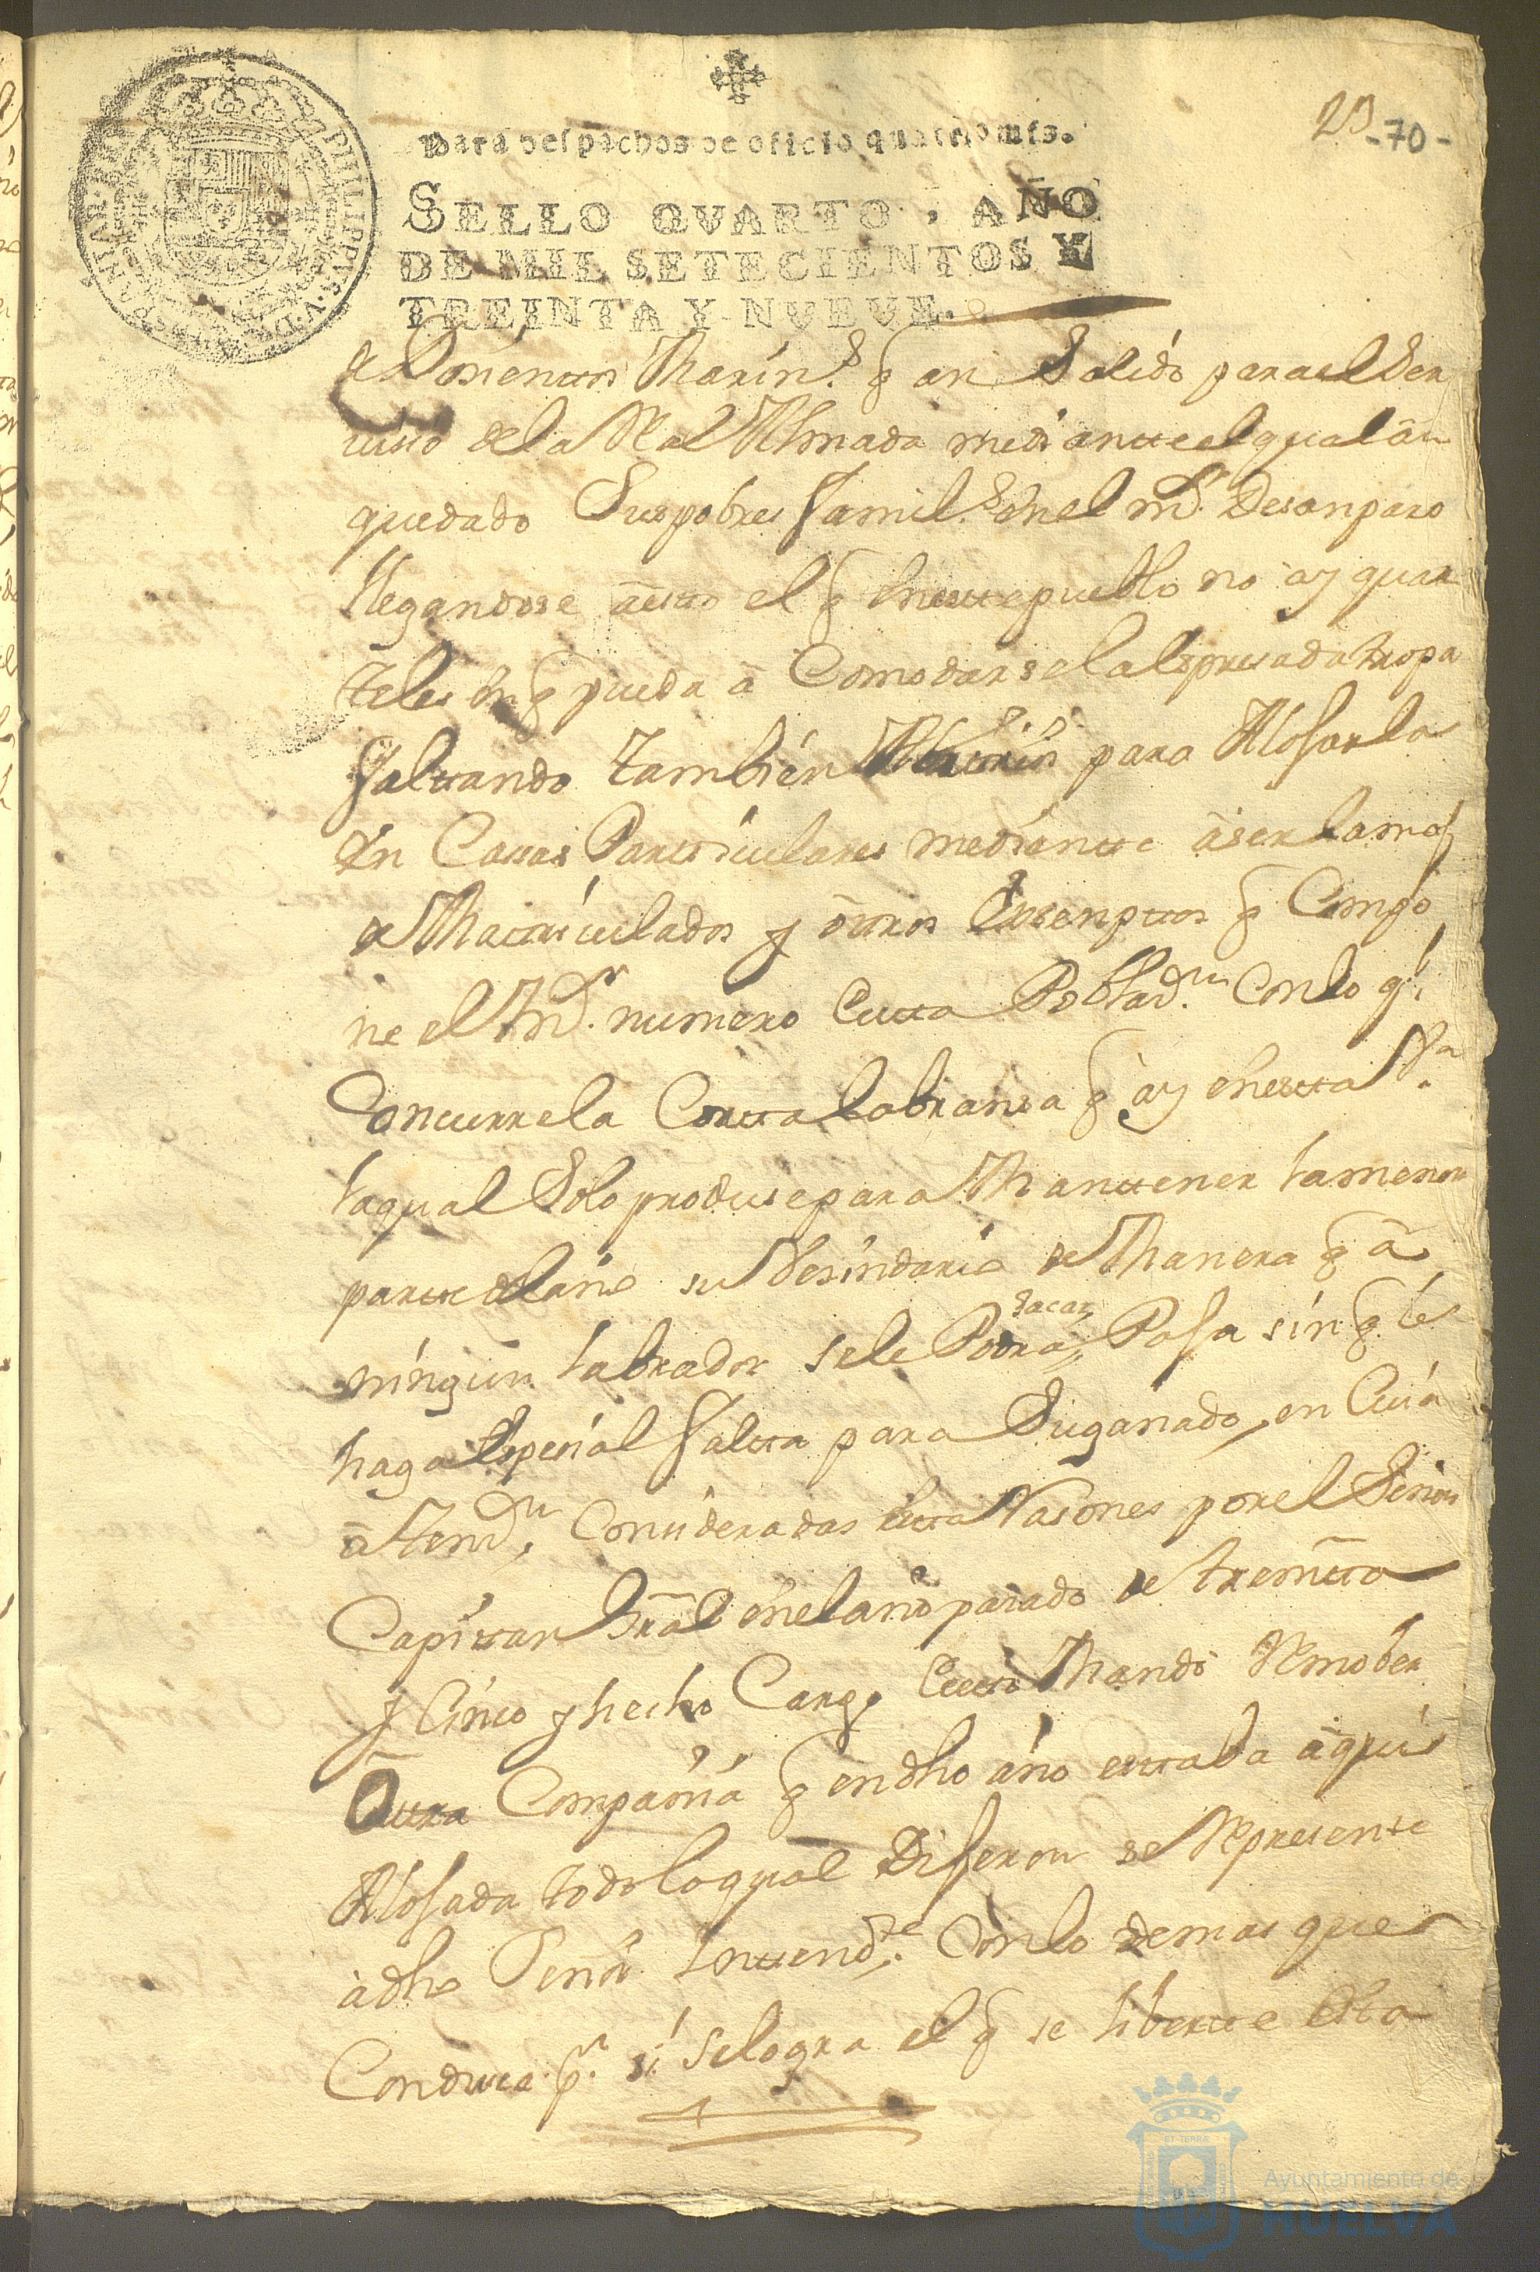 23 -70-
Para despachos de oficio quatro mrs.
SELLO QVARTO, AÑO
DE MIL SETECIENTOS Y
TREINTA Y NVEVE.
PHILIPPVS V D G
HISPANIAR REX
Marin.s q an Salido para el Ser
uisio de la Real Armada mediante el qual an
quedado Sus pobres Famil.s en el m.r Desanparo
llegandose a esto el q en este pueblo no ay quar
teles en q pueda a Comodarse la espresada tropa
faltando tambien para Alojarla
En Casas Particulares mediante a ser la mas
de Matriculados y otros Exsenptos q Compo
ne el m.r numero esta Poblaz.n Con lo q.
Concurre la Corta labransa q ay en esta V.a
la qual Solo produse para Mantener la menor
parte del año su Vesindario de Manera q a
ningun labrador se le Podra sacar Paja sin q le
haga Espesial falta para Su ganado, en Cuia
atenz.n Consideradas estas Rasones por el Señor
Capitan Gral en el año pasado de treinta
y Cinco y hecho Cargo Mando Remober
Otra Compañia q en dho año estaba aqui
Alojada todo lo qual Dijeron se Represente
a dho Señor Intend.te Con lo demas que
Condusca p.a si se logra el q se liberte esta
Ayuntamiento de
HUELVA